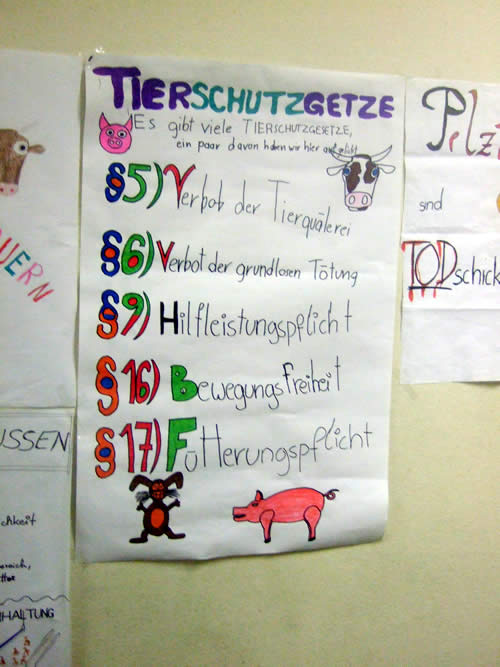 TIERSCHUTZGETZE
Es gibt viele TIERSCHUTZGESETZE,
ein paar davon haben wir hier
§5) Verbot der Tierquälerei
§6) Verbot der grundlosen Tötung
§9) Hilfleistungspflicht
§16) Bewegungsfreiheit
§17) Fütterungspflicht
UERN
USSEN
chkeit
ereich,
HALTUNG
Pelz
sind
TOD schick